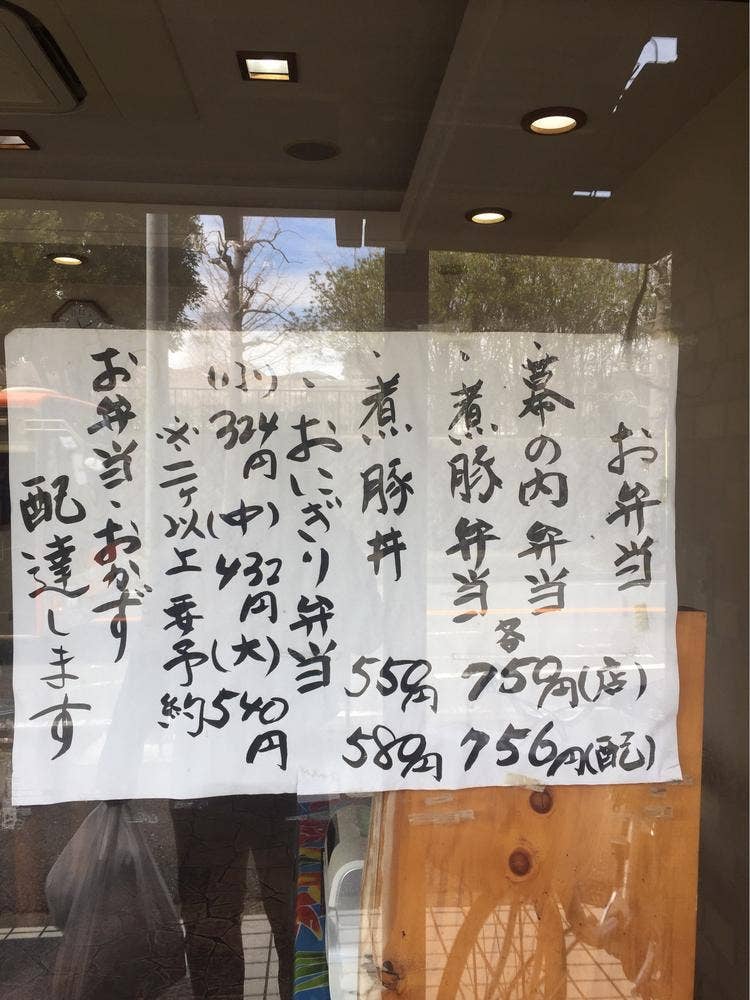 お弁当
・幕の内弁当
・煮豚弁当
各
750円(店)
756円(配)
・煮豚丼
550円
580円
・おにぎり弁当
(小) 324円 (中) 432円 (大) 540円
※二ヶ以上要予約
お弁当・おかず
配達します